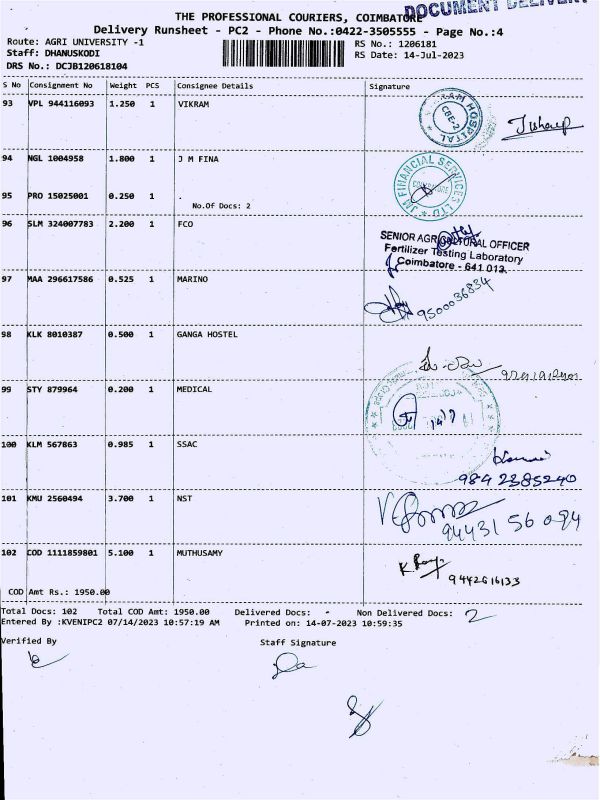 DOCUMENT DELIVERY
THE PROFESSIONAL COURIERS, COIMBATORE
Delivery Runsheet - PC2 - Phone No.:0422-3505555 - Page No.:4
Route: AGRI UNIVERSITY -1
RS No.: 1206181
Staff: DHANUSKODI
RS Date: 14-Jul-2023
DRS No.: DCJB120618104
S No Consignment No Weight PCS Consignee Details Signature
93 VPL 944116093 1.250 1 VIKRAM
HOSPITAL
CBE-2
94 NGL 1004958 1.800 1 J M FINA
JM FINANCIAL SERVICES LTD
COIMBATORE
95 PRO 15025001 0.250 1
No.Of Docs: 2
96 SLM 324007783 2.200 1 FCO
SENIOR AGRICULTURAL OFFICER
Fertilizer Testing Laboratory
Coimbatore - 641 013.
97 MAA 296617586 0.525 1 MARINO
9500036834
98 KLK 8010387 0.500 1 GANGA HOSTEL
99 STY 879964 0.200 1 MEDICAL
100 KLM 567863 0.985 1 SSAC
984 2385240
101 KMU 2560494 3.700 1 NST
94431 56 094
102 COD 1111859801 5.100 1 MUTHUSAMY
9442616133
COD Amt Rs.: 1950.00
Total Docs: 102 Total COD Amt: 1950.00 Delivered Docs: - Non Delivered Docs: 2
Entered By :KVENIPC2 07/14/2023 10:57:19 AM Printed on: 14-07-2023 10:59:35
Verified By Staff Signature